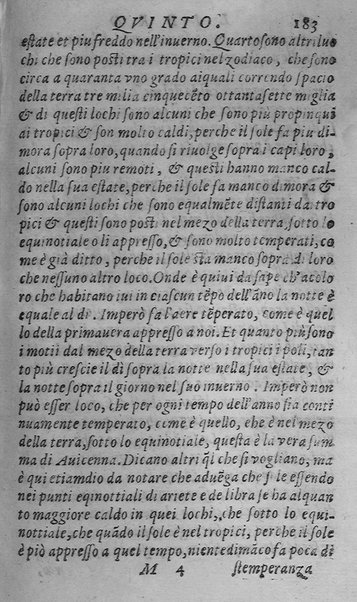 QVINTO. 183
estate et piu freddo nell'inuerno. Quarto sono altri luo
chi che sono posti tra i tropici nel zodiaco, che sono
circa a quaranta vno grado aiquali correndo spacio
della terra tre milia cinquecẽto ottantasette miglia
& di questi lochi sono alcuni che sono più propinqui
ai tropici & son molto caldi, perche il sole fa piu di
mora sopra loro, quando si riuolge sopra i capi loro,
alcuni sono piu remoti, & questi hanno manco cal
do nella sua estate, perche il sole fa manco dimora &
sono alcuni lochi che sono equalmẽte distanti da tro
pici & questi sono posti nel mezo della terra sotto lo
equinotiale o li appresso, & sono molto temperati, co
me è già ditto, perche il sole sta manco sopra di loro
che nessuno altro loco. Onde è quiui da sape ch'acolo
ro che habitano iui in ciascun tẽpo dell'ãno la notte è
equale al dì. Imperò fa l'aere tẽperato, come è quel
lo della primauera appresso a noi. Et quanto più sono
i moti dal mezo della terra verso i tropici i poli, tan
to più crescie il dì sopra la notte nella sua estate, &
la notte sopra il giorno nel suo inuerno. Imperò non
può esser loco, che per ogni tempo dell'anno sia conti
nuamente temperato, come è quello, che è nel mezo
della terra, sotto lo equinotiale, questa è la vera sum
ma di Auicenna. Dicano altri ql̃ che si vogliano, ma
è qui etiamdio da notare che aduẽga che 'l sole essendo
nei punti equinottiali di ariete e de libra se ha alquan
to maggiore caldo in quei lochi, che sotto lo equi-
nottiale, che quãdo il sole è nel tropici, perche il sole
è piò appresso a quel tempo, nientedimãco fa poca di
M 4 stemperanza